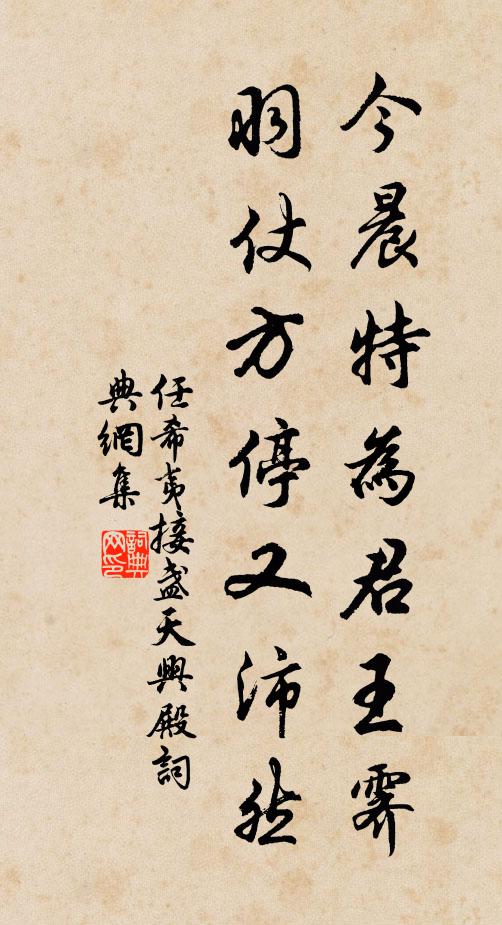 今晨特為君王霽
羽仗方停又沛然
任希夷接盏天興殿詞
典網集
詞典网印